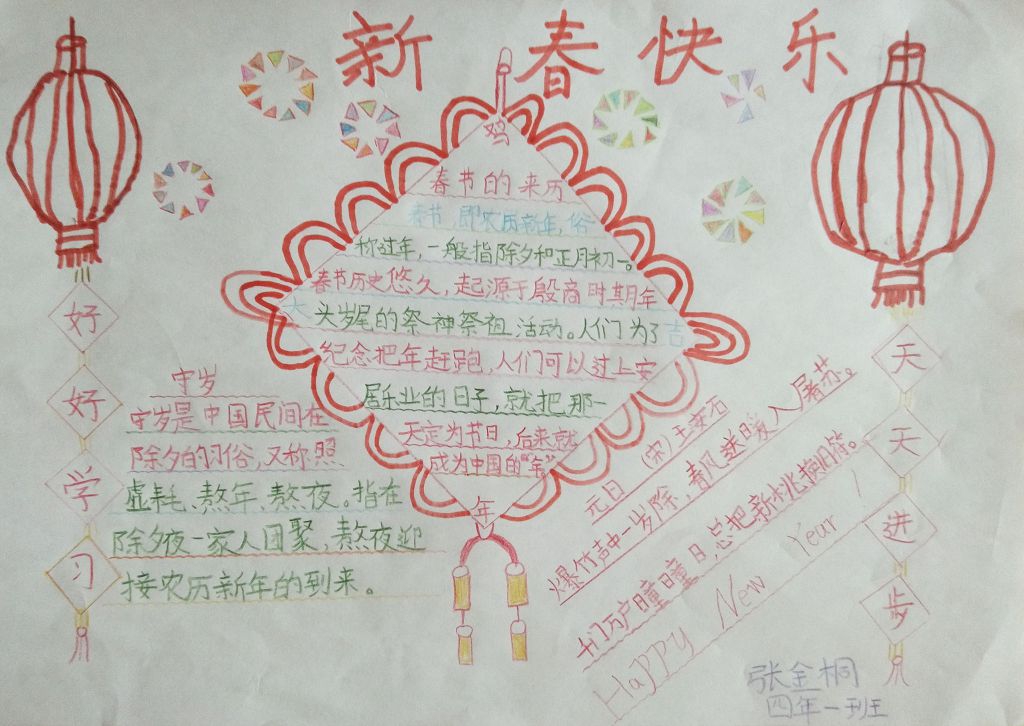 新春快乐
鸡
春节的来历
春节,即农历新年,俗
称过年,一般指除夕和正月初一。
春节历史悠久,起源于殷商时期年
大
头岁尾的祭神祭祖活动。人们为了
吉
纪念把年赶跑,人们可以过上安
居乐业的日子,就把那一
天定为节日,后来就
成为中国的“年”
年
好
好
学
习
守岁
守岁是中国民间在
除夕的习俗,又称照
虚耗、熬年、熬夜。指在
除夕夜一家人团聚,熬夜迎
接农历新年的到来。
元日 (宋)王安石
爆竹声中一岁除,春风送暖入屠苏。
千门万户曈曈日,总把新桃换旧符。
Happy New Year!
天
天
进
步
张金桐
四年一班